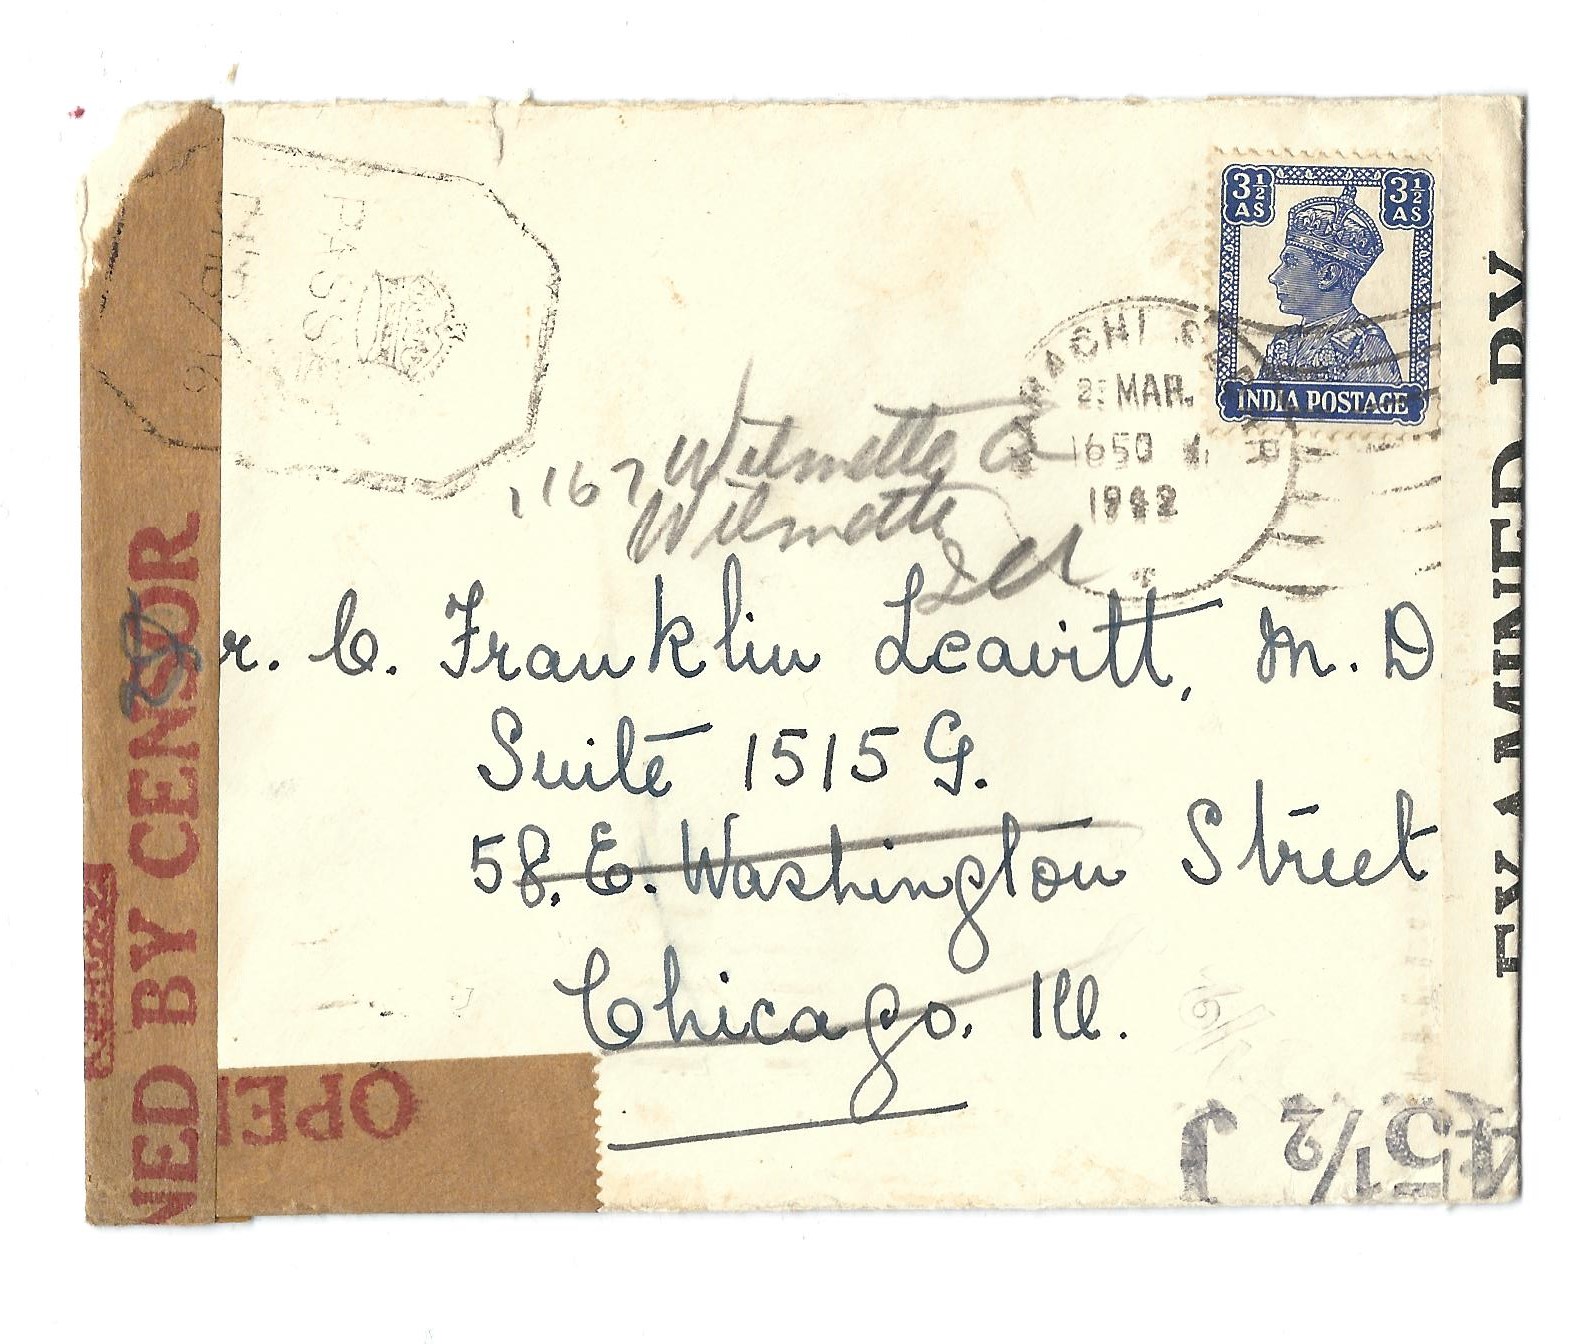 3½ AS 3½ AS
INDIA POSTAGE
PASSE
MAR.
1650
1942
1167 Wilmette
Wilmette
Ill
r. C. Franklin Leavitt, M. D
Suite 1515 G.
58. E. Washington Street
Chicago. Ill.
NED BY CENSOR
OPE
EXAMINED BY